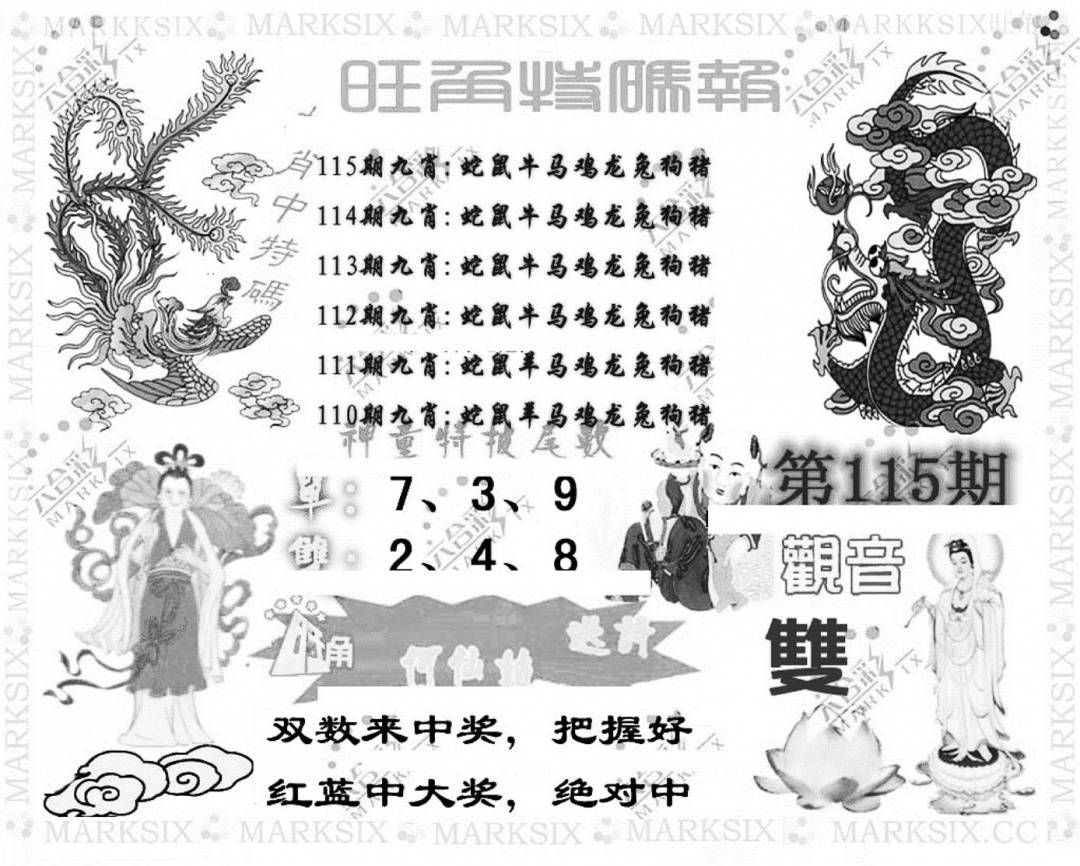 MARKSIX MARKSIX MARKSIX MARKSIX MARKKSIX
旺角特碼報
肖中特碼
115期九肖: 蛇鼠牛马鸡龙兔狗猪
114期九肖: 蛇鼠牛马鸡龙兔狗猪
113期九肖: 蛇鼠牛马鸡龙兔狗猪
112期九肖: 蛇鼠牛马鸡龙兔狗猪
111期九肖: 蛇鼠羊马鸡龙兔狗猪
110期九肖: 蛇鼠羊马鸡龙兔狗猪
神童特报尾數
單: 7、3、9
雙: 2、4、8
第115期
觀音
雙
何仙姑
双数来中奖, 把握好
红蓝中大奖, 绝对中
MARKSIX MARKSIX MARKSIX MARKSIX MARKSIX.CC